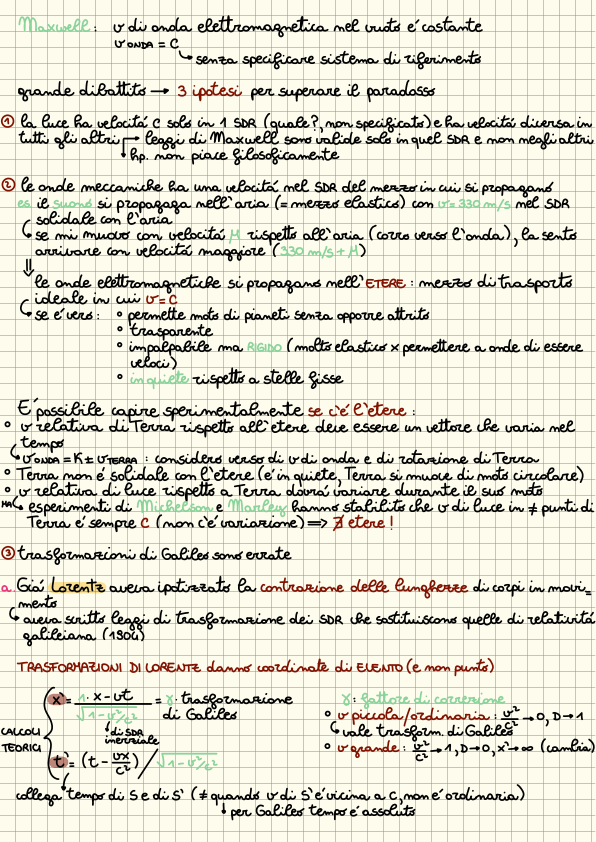 Maxwell: v di onda elettromagnetica nel vuoto é costante
v ONDA = C
↳ senza specificare sistema di riferimento
grande dibattito → 3 ipotesi per superare il paradosso
① la luce ha velocitá C solo in 1 SDR (quale?, non specificato) e ha velocitá diversa in
tutti gli altri → leggi di Maxwell sono valide solo in quel SDR e non negli altri
↓ hp. non piace filosoficamente
② le onde meccaniche ha una velocitá nel SDR del mezzo in cui si propagano
es il suono si propagaga nell'aria (= mezzo elastico) con v= 330 m/s nel SDR
solidale con l'aria
↳ se mi muovo con velocitá μ rispetto all'aria (corro verso l'onda), la sento
arrivare con velocitá maggiore (330 m/s + μ)
⇓
le onde elettromagnetiche si propagano nell'ETERE : mezzo di trasporto
ideale in cui v = C
↳ se é vero: ° permette moto di pianeti senza opporre attrito
° trasparente
° impalpabile ma RIGIDO (molto elastico x permettere a onde di essere
veloci)
° in quiete rispetto a stelle fisse
É possibile capire sperimentalmente se c'é l'etere :
° v relativa di Terra rispetto all'etere deve essere un vettore che varia nel
tempo
↳ v ONDA = K ± v TERRA : considero verso di v di onda e di rotazione di Terra
° Terra non é solidale con l'etere (é in quiete, Terra si muove di moto circolare)
° v relativa di luce rispetto a Terra dovrá variare durante il suo moto
MA ↳ esperimenti di Michelson e Marley hanno stabilito che v di luce in ≠ punti di
Terra é sempre C (non c'é variazione) ⇒ ∄ etere !
③ trasformazioni di Galileo sono errate
a. Giá Lorentz aveva ipotizzato la contrazione delle lunghezze di corpi in movi=
mento
↳ aveva scritto leggi di trasformazione dei SDR che sostituiscono quelle di relativitá
galileiana (1904)
TRASFORMAZIONI DI LORENTZ danno coordinate di EVENTO (e non punto)
x' = 1 · x - vt / √1 - v²/c² = γ · trasformazione
di Galileo
↓ di SDR
inerziale
CALCOLI
TEORICI
t' = (t - vx/c²) / √1 - v²/c²
γ: fattore di correzione
° v piccola/ordinaria : v²/c² → 0, D → 1
↳ vale trasform. di Galileo
° v grande : v²/c² → 1, D → 0, x' → ∞ (cambia)
collega tempo di S e di S' (≠ quando v di S' é vicina a C, non é ordinaria)
↓ per Galileo tempo é assoluto